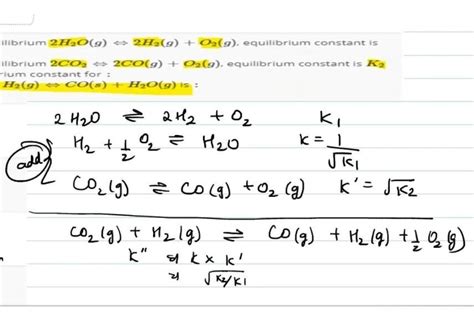 ilibrium 2H₂O(g) ⇔ 2H₂(g) + O₂(g), equilibrium constant is
ilibrium 2CO₂ ⇔ 2CO(g) + O₂(g), equilibrium constant is K₂
rium constant for :
H₂(g) ⇔ CO(s) + H₂O(g) is :
2H₂O ⇌ 2H₂ + O₂ K₁
add H₂ + 1/2 O₂ ⇌ H₂O K = 1/√K₁
CO₂(g) ⇌ CO(g) + O₂(g) K' = √K₂
CO₂(g) + H₂(g) ⇌ CO(g) + H₂(g) + 1/2 O₂(g)
K'' ⇒ K × K'
⇒ √K₂/K₁